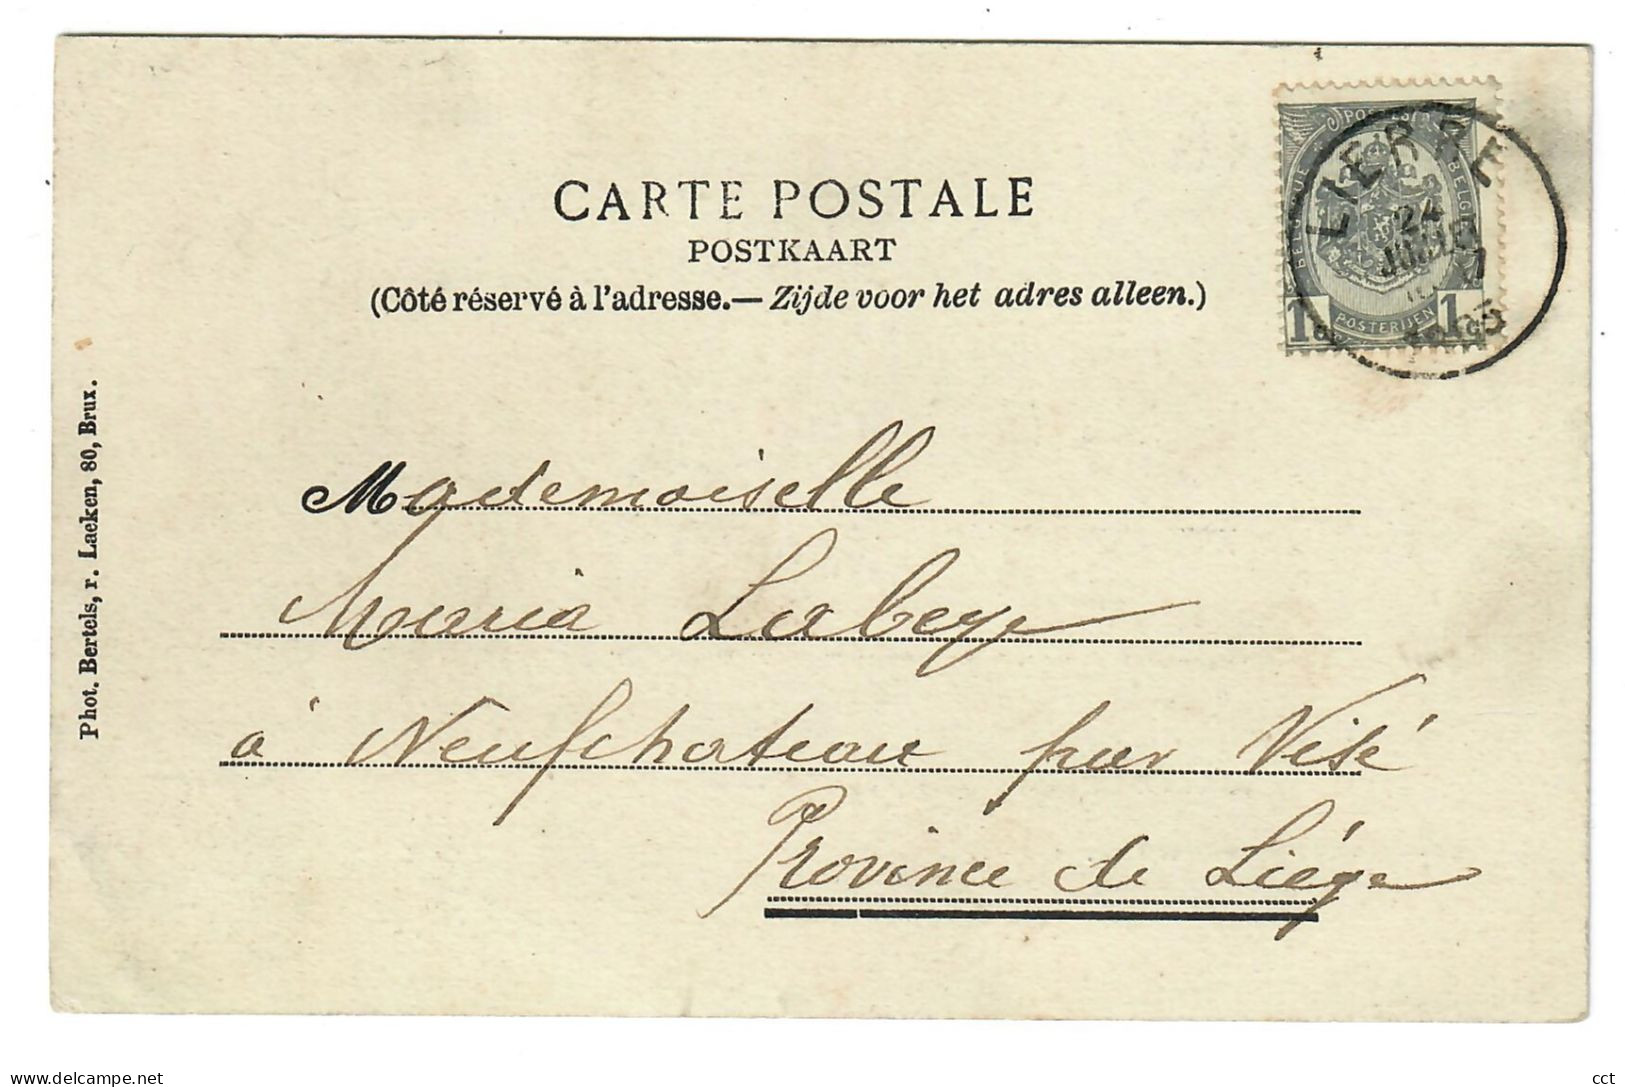 CARTE POSTALE
POSTKAART
(Côté réservé à l'adresse.— Zijde voor het adres alleen.)
POSTES
BELGIQUE
BELGIE
POSTERIJEN
1c 1c
LIERRE
24
1903
Phot. Bertels, r. Laeken, 80, Brux.
Mademoiselle
Maria Labeye
à Neufchateau par Visé
Province de Liége
delcampe.net
cct